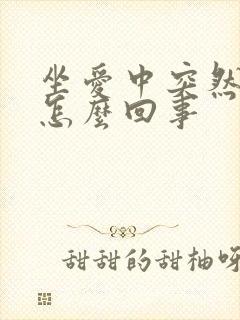 坐愛中突然
怎麼回事
甜甜的甜柚呀